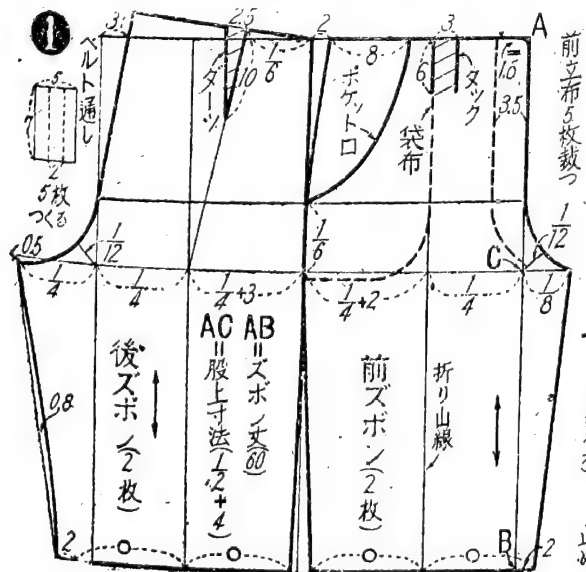 ❶
3
2.5
2
3
A
ベルト通し
5
7
2
5枚
つくる
ダーツ
10
1/6
8
ポケット口
6
袋布
タック
3.5
前立布5枚裁つ
0.5
1/12
1/6
C
1/12
1/4
1/4
1/4+3
1/4+2
1/4
1/8
後ズボン(2枚)
AB=ズボン丈(60)
AC=股上寸法(1/2+4)
前ズボン(2枚)
折り山線
0.8
2
B
2